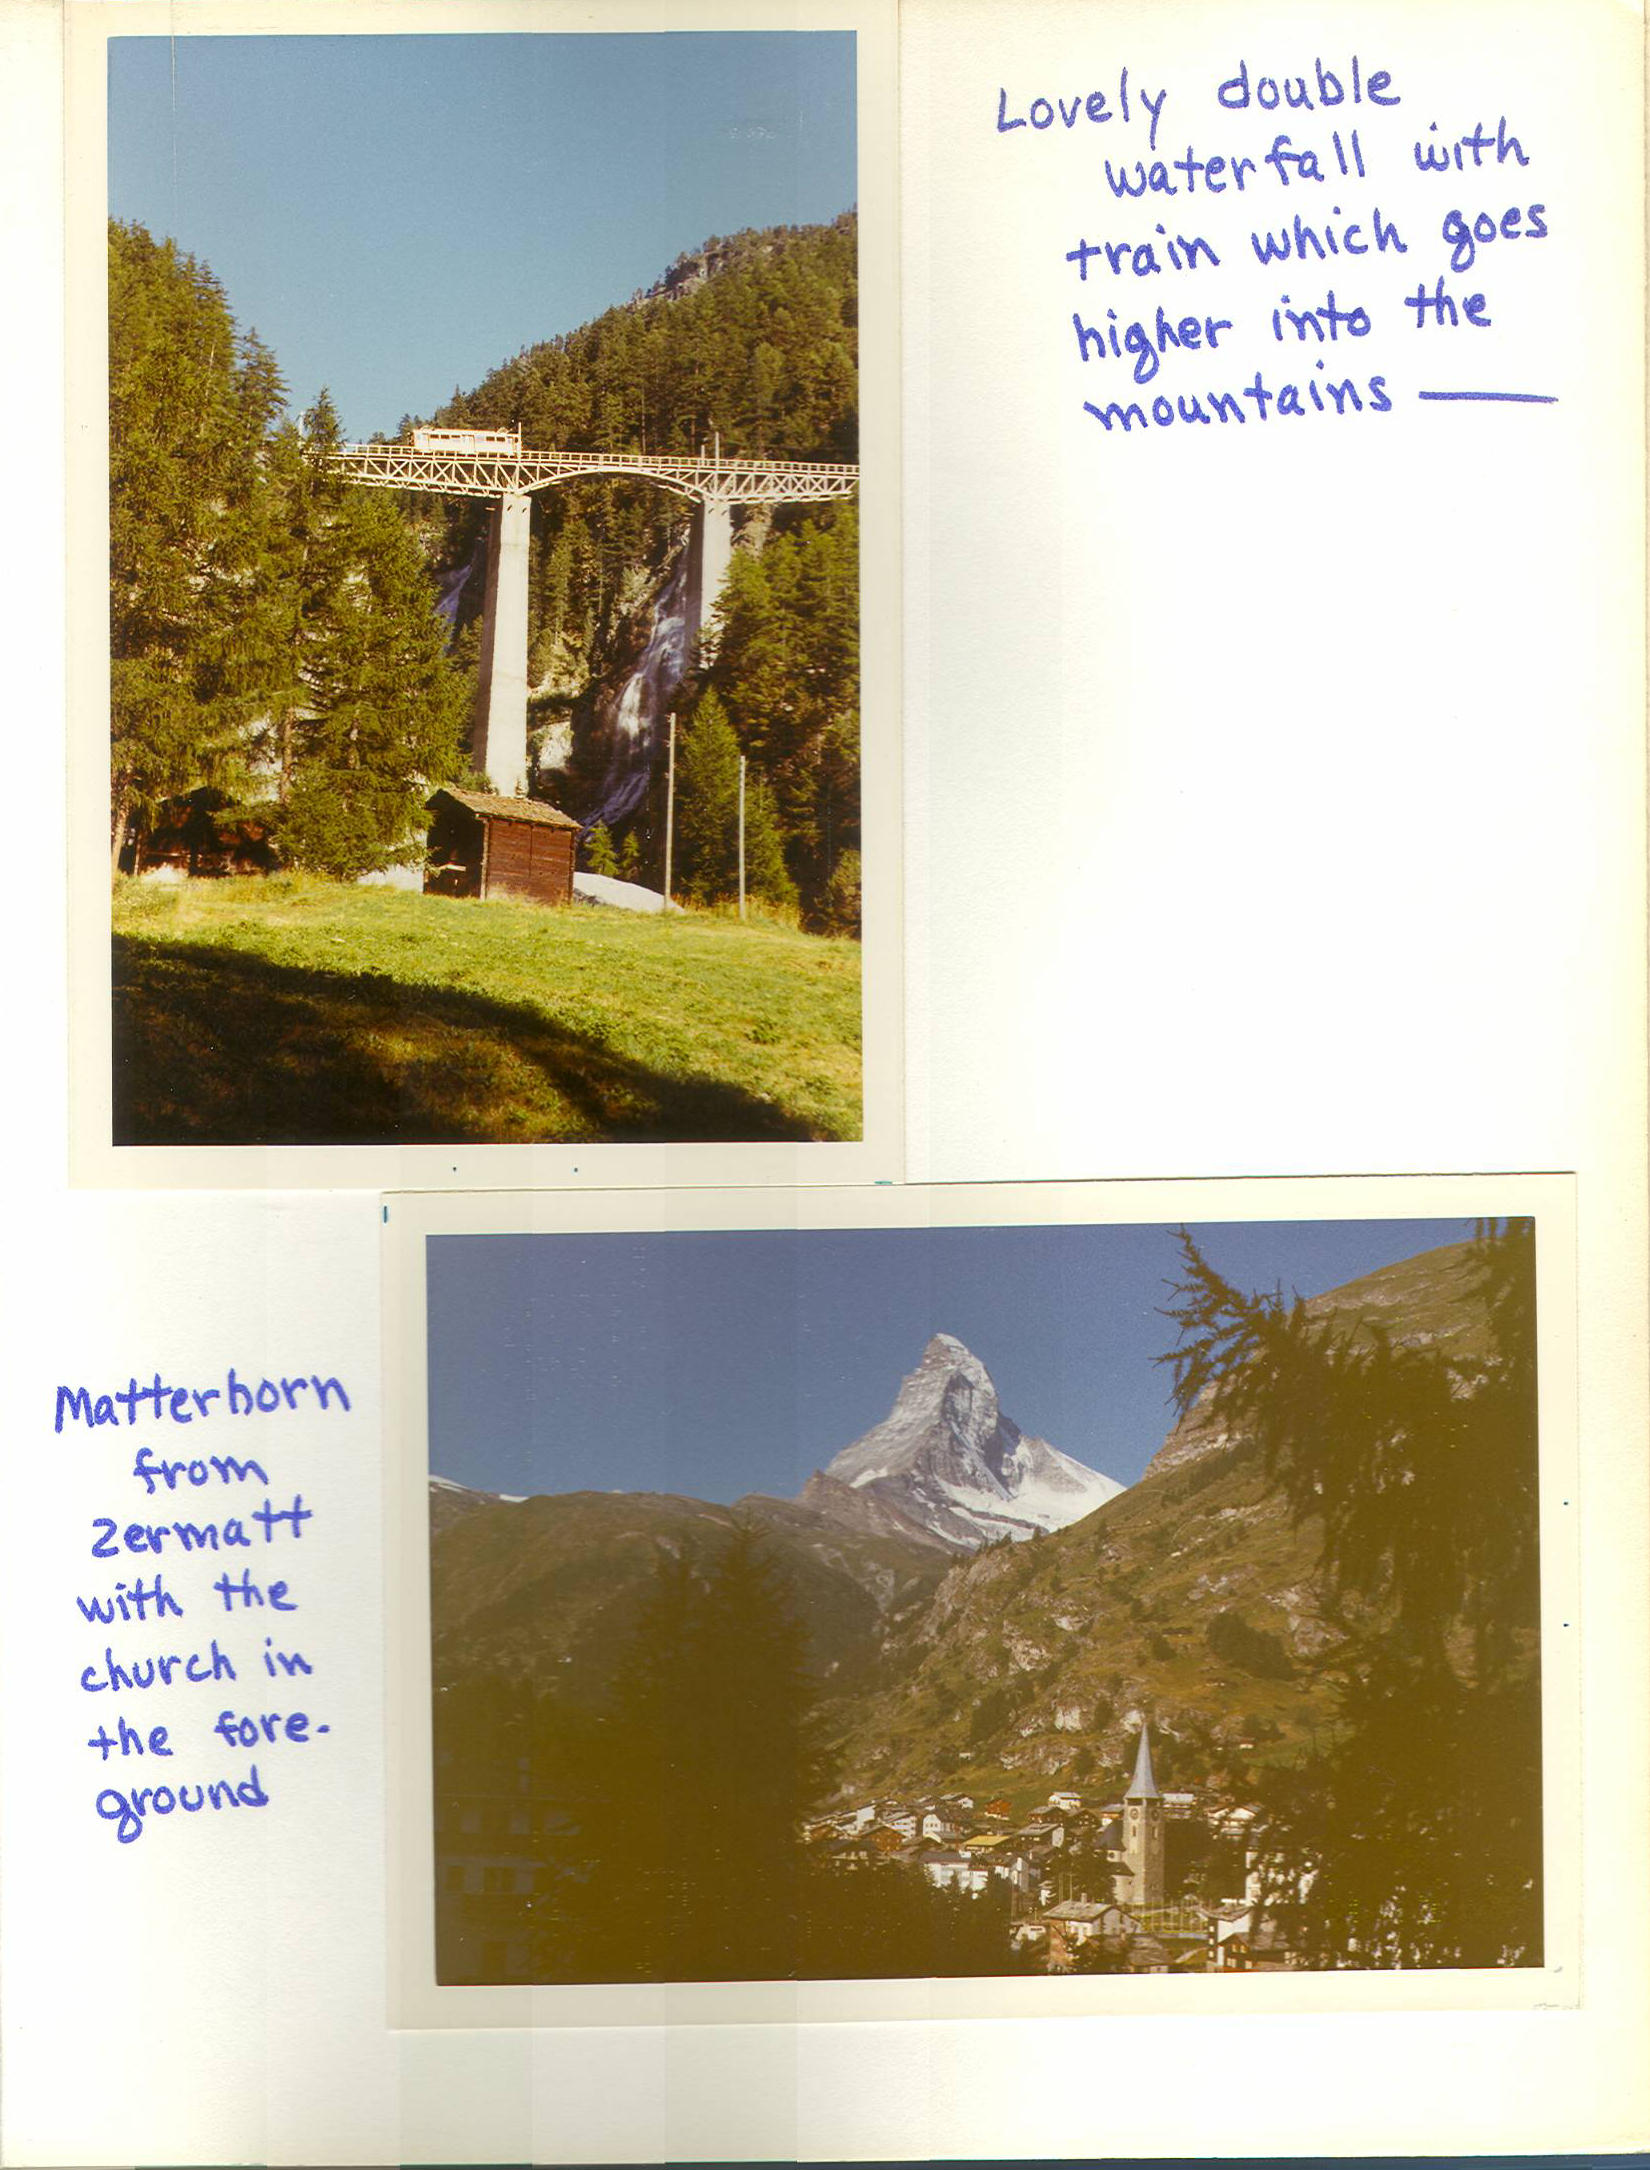 Lovely double
waterfall with
train which goes
higher into the
mountains —
Matterhorn
from
Zermatt
with the
church in
the fore-
ground